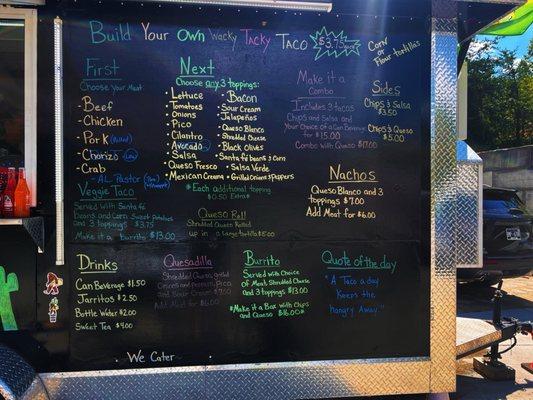 Build Your Own Wacky Tacky Taco
$3.75/each
Corn or
Flour tortillas
First
Choose Your Meat
- Beef
- Chicken
- Pork
- Chorizo
- Crab
AL Pastor
Veggie Taco
Served with Santa fe
Beans and Corn Sweet Potatoes
and 3 toppings $3.75
Make it a burrito $13.00
Next
Choose any 3 toppings:
• Lettuce
• Tomatoes
• Onions
• Pico
• Cilantro
• Avocado
• Salsa
• Queso Fresco
• Mexican Crema
• Bacon
• Sour Cream
• Jalapeños
• Queso Blanco
• Shredded Cheese
• Black Olives
• Santa fe beans & Corn
• Salsa Verde
• Grilled Onions & Peppers
*Each additional topping
$0.50 Extra*
Queso Roll
Shredded Queso Rolled
up in a large tortilla $5.00
Make it a
Combo
Includes 3 tacos
Chips and Salsa and
Your Choice of a Can Beverage
for $15.00
Combo with Queso $17.00
Sides
Chips & Salsa
$3.50
Chips & Queso
$5.00
Nachos
Queso Blanco and 3
toppings $7.00
Add Meat for $6.00
Drinks
Can Beverage $1.50
Jarritos $2.50
Bottle Water $2.00
Sweet Tea $4.00
Quesadilla
Shredded Queso, Grilled
Onions and Peppers, Pico
and Sour Cream
Add Meat for $6.00
Burrito
Served with Choice
of Meat, Shredded Cheese
and 3 toppings $13.00
*Make it a Box with Chips
and Queso $16.00*
Quote of the day
"A Taco a day
Keeps the
hangry Away"
We Cater